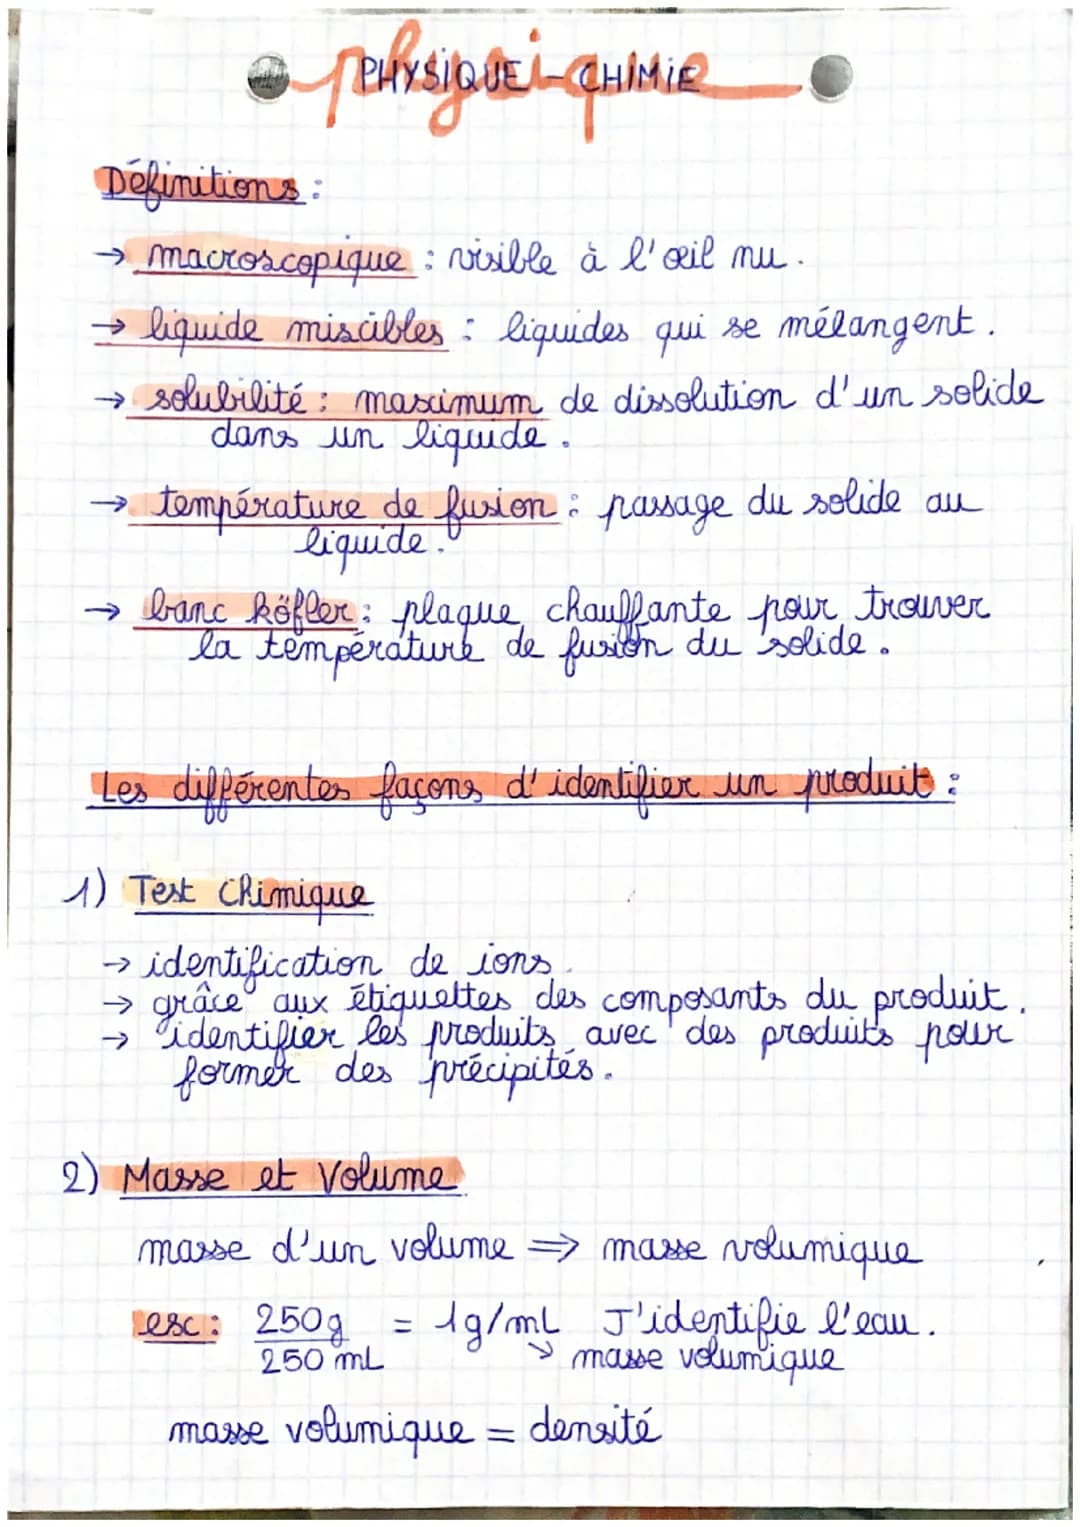 physique
PHYSIQUE-CHIMIE
Définitions :
→ macroscopique : visible à l'œil nu.
→ liquide miscibles : liquides qui se mélangent.
→ solubilité : maximum de dissolution d'un solide
dans un liquide.
→ température de fusion : passage du solide au
liquide.
→ banc köfler : plaque chauffante pour trouver
la température de fusion du solide.
Les différentes façons d'identifier un produit :
1) Test Chimique
→ identification de ions.
→ grâce aux étiquettes des composants du produit.
→ identifier les produits avec des produits pour
former des précipités.
2) Masse et Volume
masse d'un volume ⇒ masse volumique
ex : 250g = 1g/mL J'identifie l'eau.
250 mL → masse volumique
masse volumique = densité